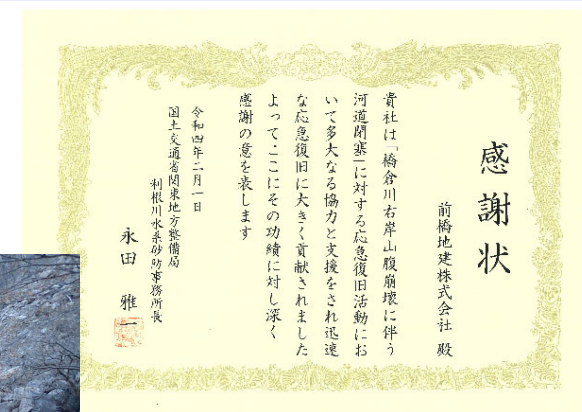 感謝状
前橋地建株式会社 殿
貴社は「橋倉川右岸山腹崩壊に伴う
河道閉塞」に対する応急復旧活動にお
いて多大なる協力と支援をされ迅速
な応急復旧に大きく貢献されました
よってここにその功績に対し深く
感謝の意を表します
令和四年二月一日
国土交通省関東地方整備局
利根川水系砂防事務所長
永田 雅一